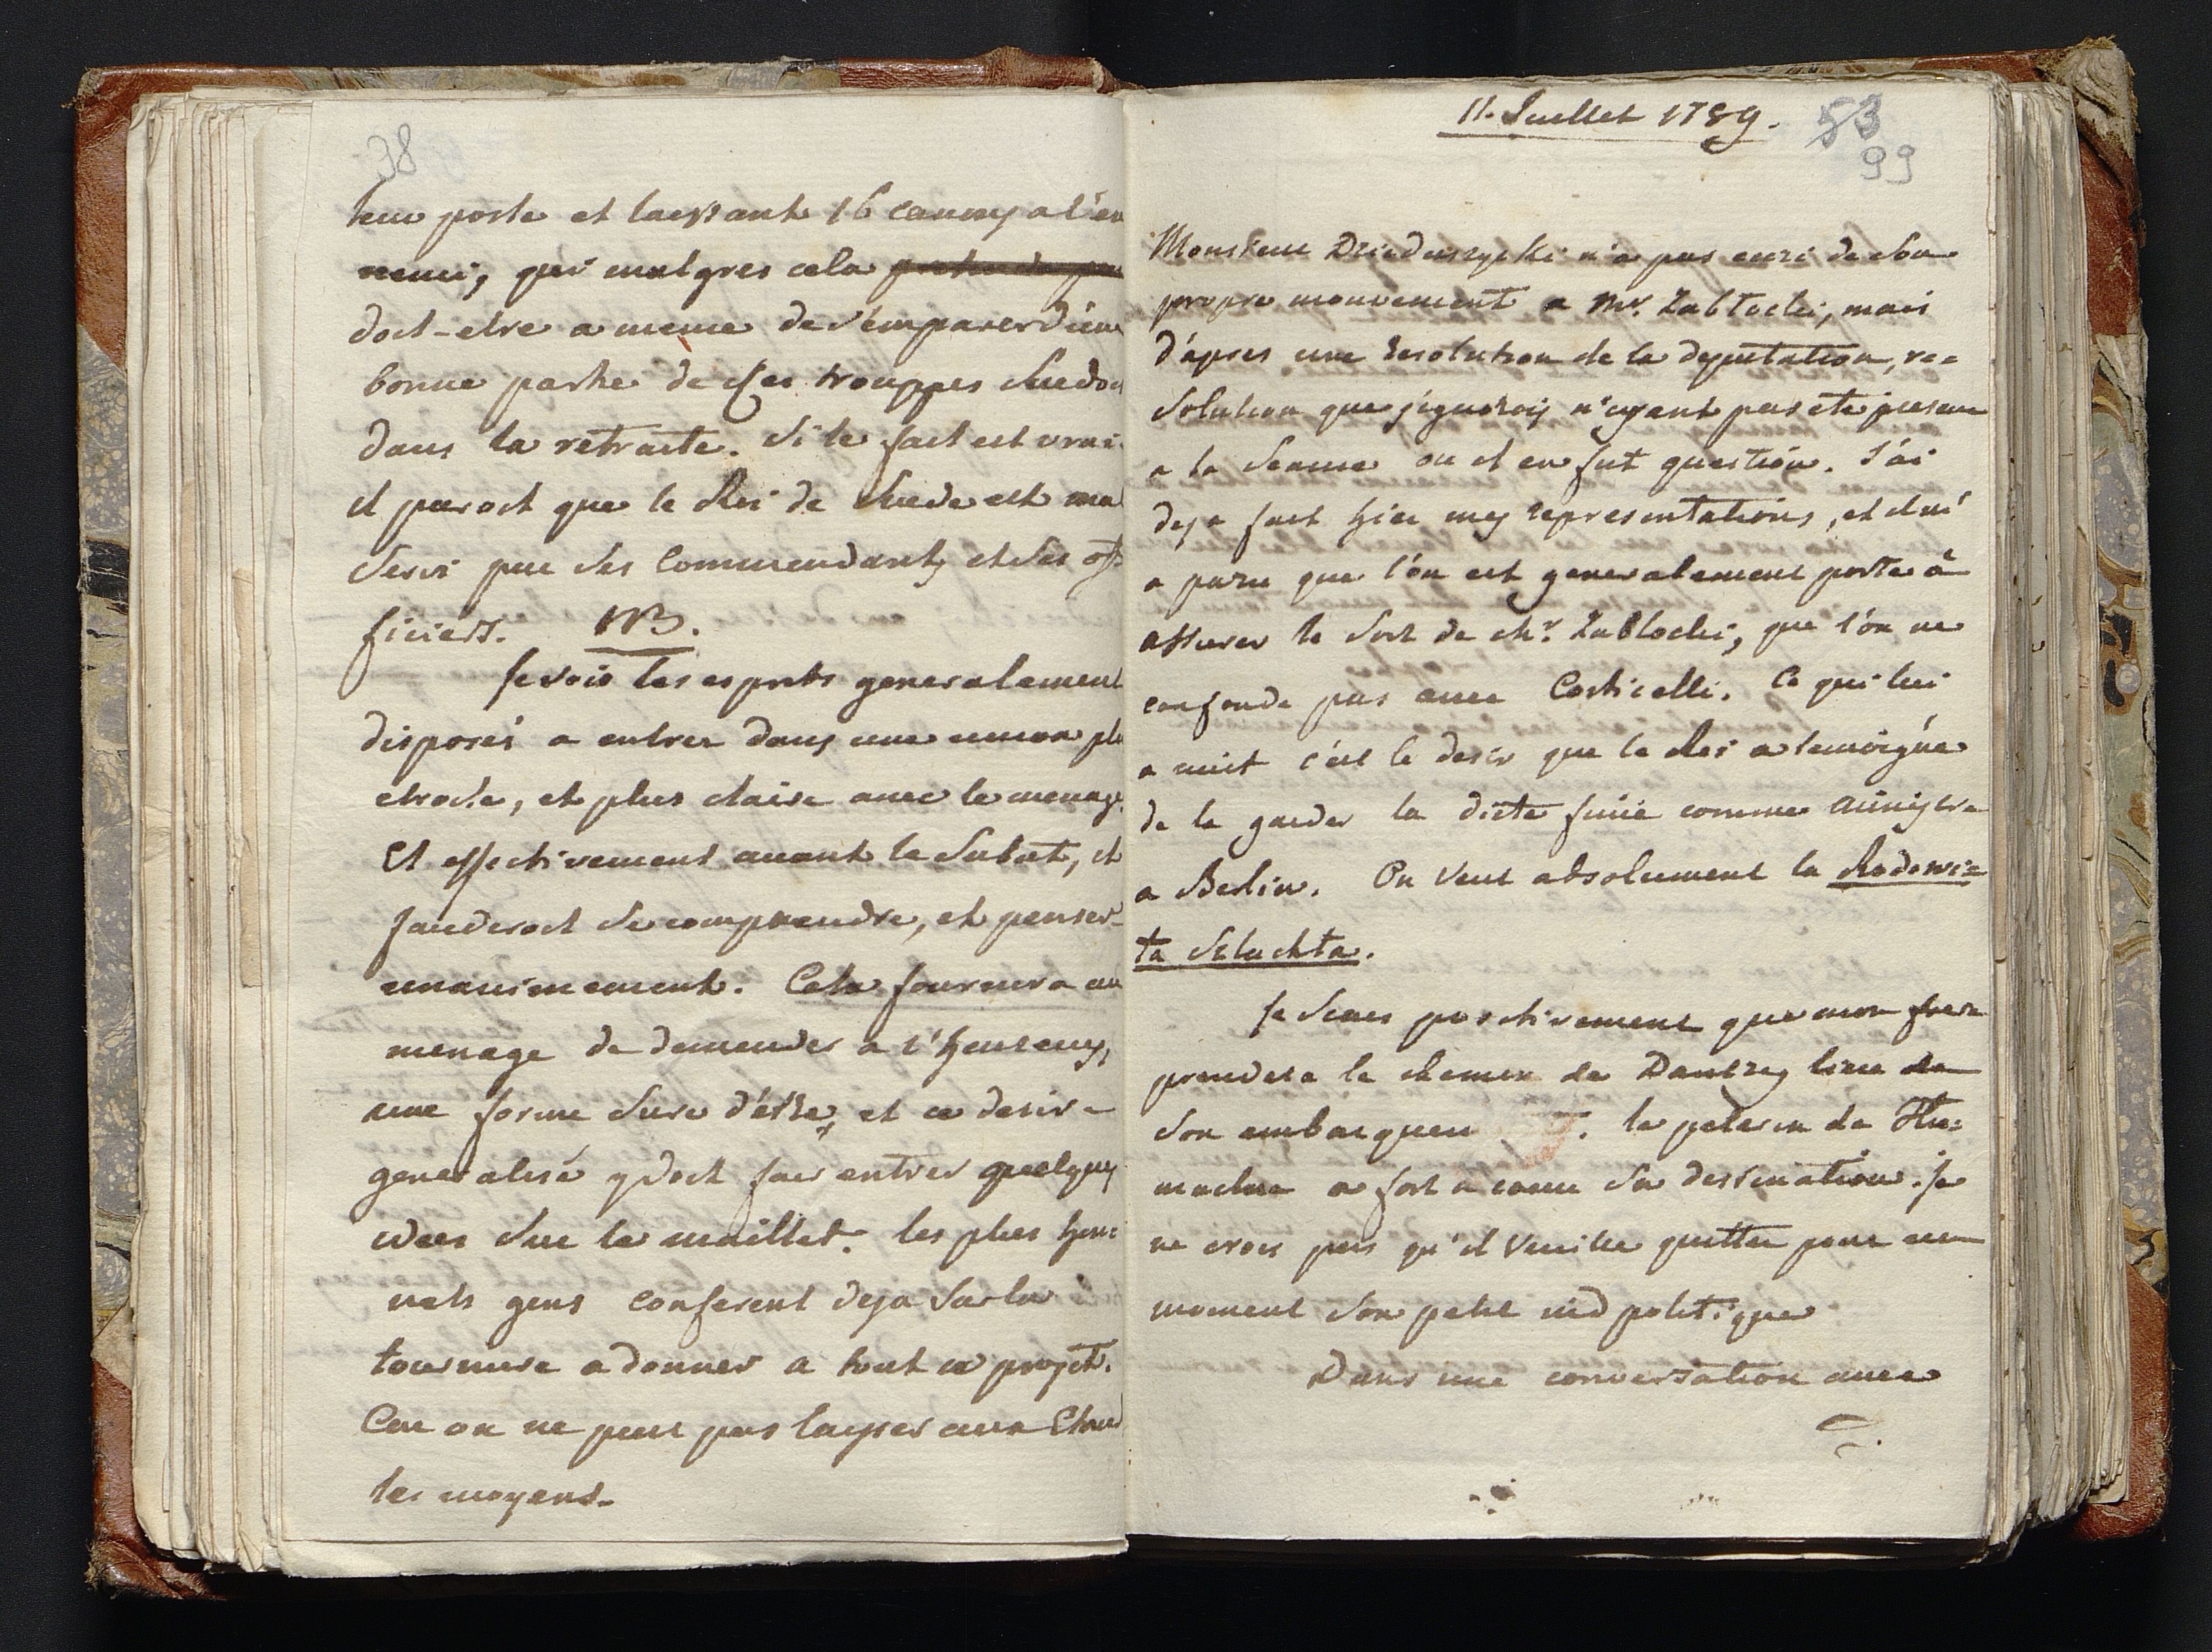 38
leur poste et laissant 16 canons a l'en
nemi, qui malgres cela
doit-etre a meme de s'emparer d'une
bonne partie de ses trouppes Suedoi
dans la retraite. Si le fait est vrai
il paroit que le Roi de Suede est mal
servi par ses Commendants et ses of-
ficiers. NB.
Je vois les esprits generalement
disposés a entrer dans une union plu
etroite, et plus claire avec le menage.
Et effectivement avant le Sabat, il
fauderoit se comprendre, et penser
unanimement. Cela fournira au
menage de demander a l'
une forme sure d'être, et ce desir
generalisé doit faire entrer quelques
idees sur le maillet. les plus hon=
nets gens conferent deja sur la
tournure a donner a tout ce projet.
Car on ne peut pas laisser aux
les moyens.
11. Juillet 1789.
53
99
Monsieur Dzieduszycki n'a pas ecri de son
propre mouvement a Mr. Zabłocki, mais
d'apres une resolution de la deputation, re=
solution que j'ignorois n'ayant pas eté present
a la seance ou il en fut question. J'ai
deja fait hier mes representations, et il m'
a paru que l'on est generalement porté â
assurer le sort de Mr. Zablocki, que l'on ne
confonde pas avec Corticelli. Ce qui lui
a nuit c'est le desir que le Roi a temoigné
de le garder la diete finie comme Ministre
a Berlin. On veut absolument la Rodowi=
ta Szlachta.
Je scais positivement que mon frere
prendera le chemin de Dantzig lieu de
son embarquem . le pelerin de Hu=
a fort a coeur sa destination. Je
ne crois pas qu'il veuille quitter pour un
moment son petit nid politique
Dans une conversation avec